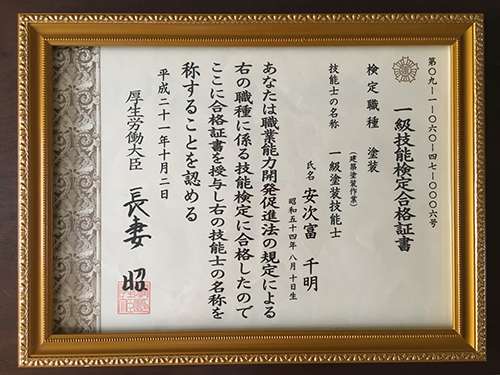 第〇九－一－〇六〇－四七－〇〇〇六号
一級技能検定合格証書
検定職種　塗装
（建築塗装作業）
技能士の名称　一級塗装技能士
氏名　安次富　千明
昭和五十四年　八月十日生
あなたは職業能力開発促進法の規定による
右の職種に係る技能検定に合格したので
ここに合格証書を授与し右の技能士の名称を
称することを認める
平成二十一年十月二日
厚生労働大臣　長妻　昭